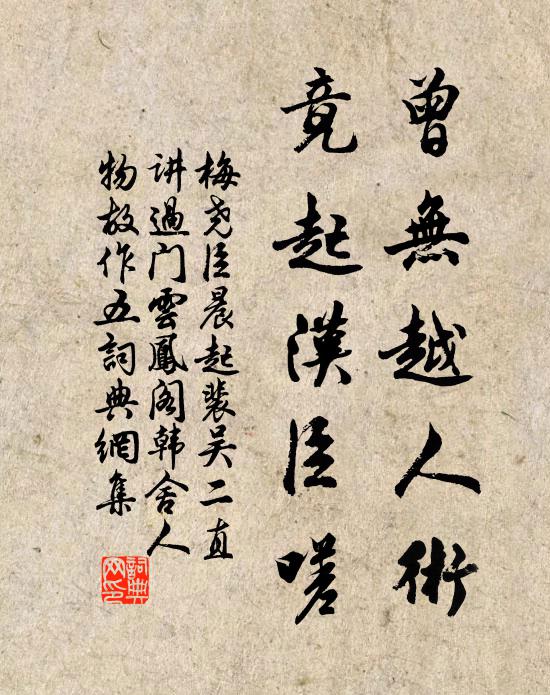 曾無越人術
竟起漢臣嗟
梅尧臣晨起裴吴二直
讲過门雲鳳阁韩舍人
物故作五詞典網集
詞典網印